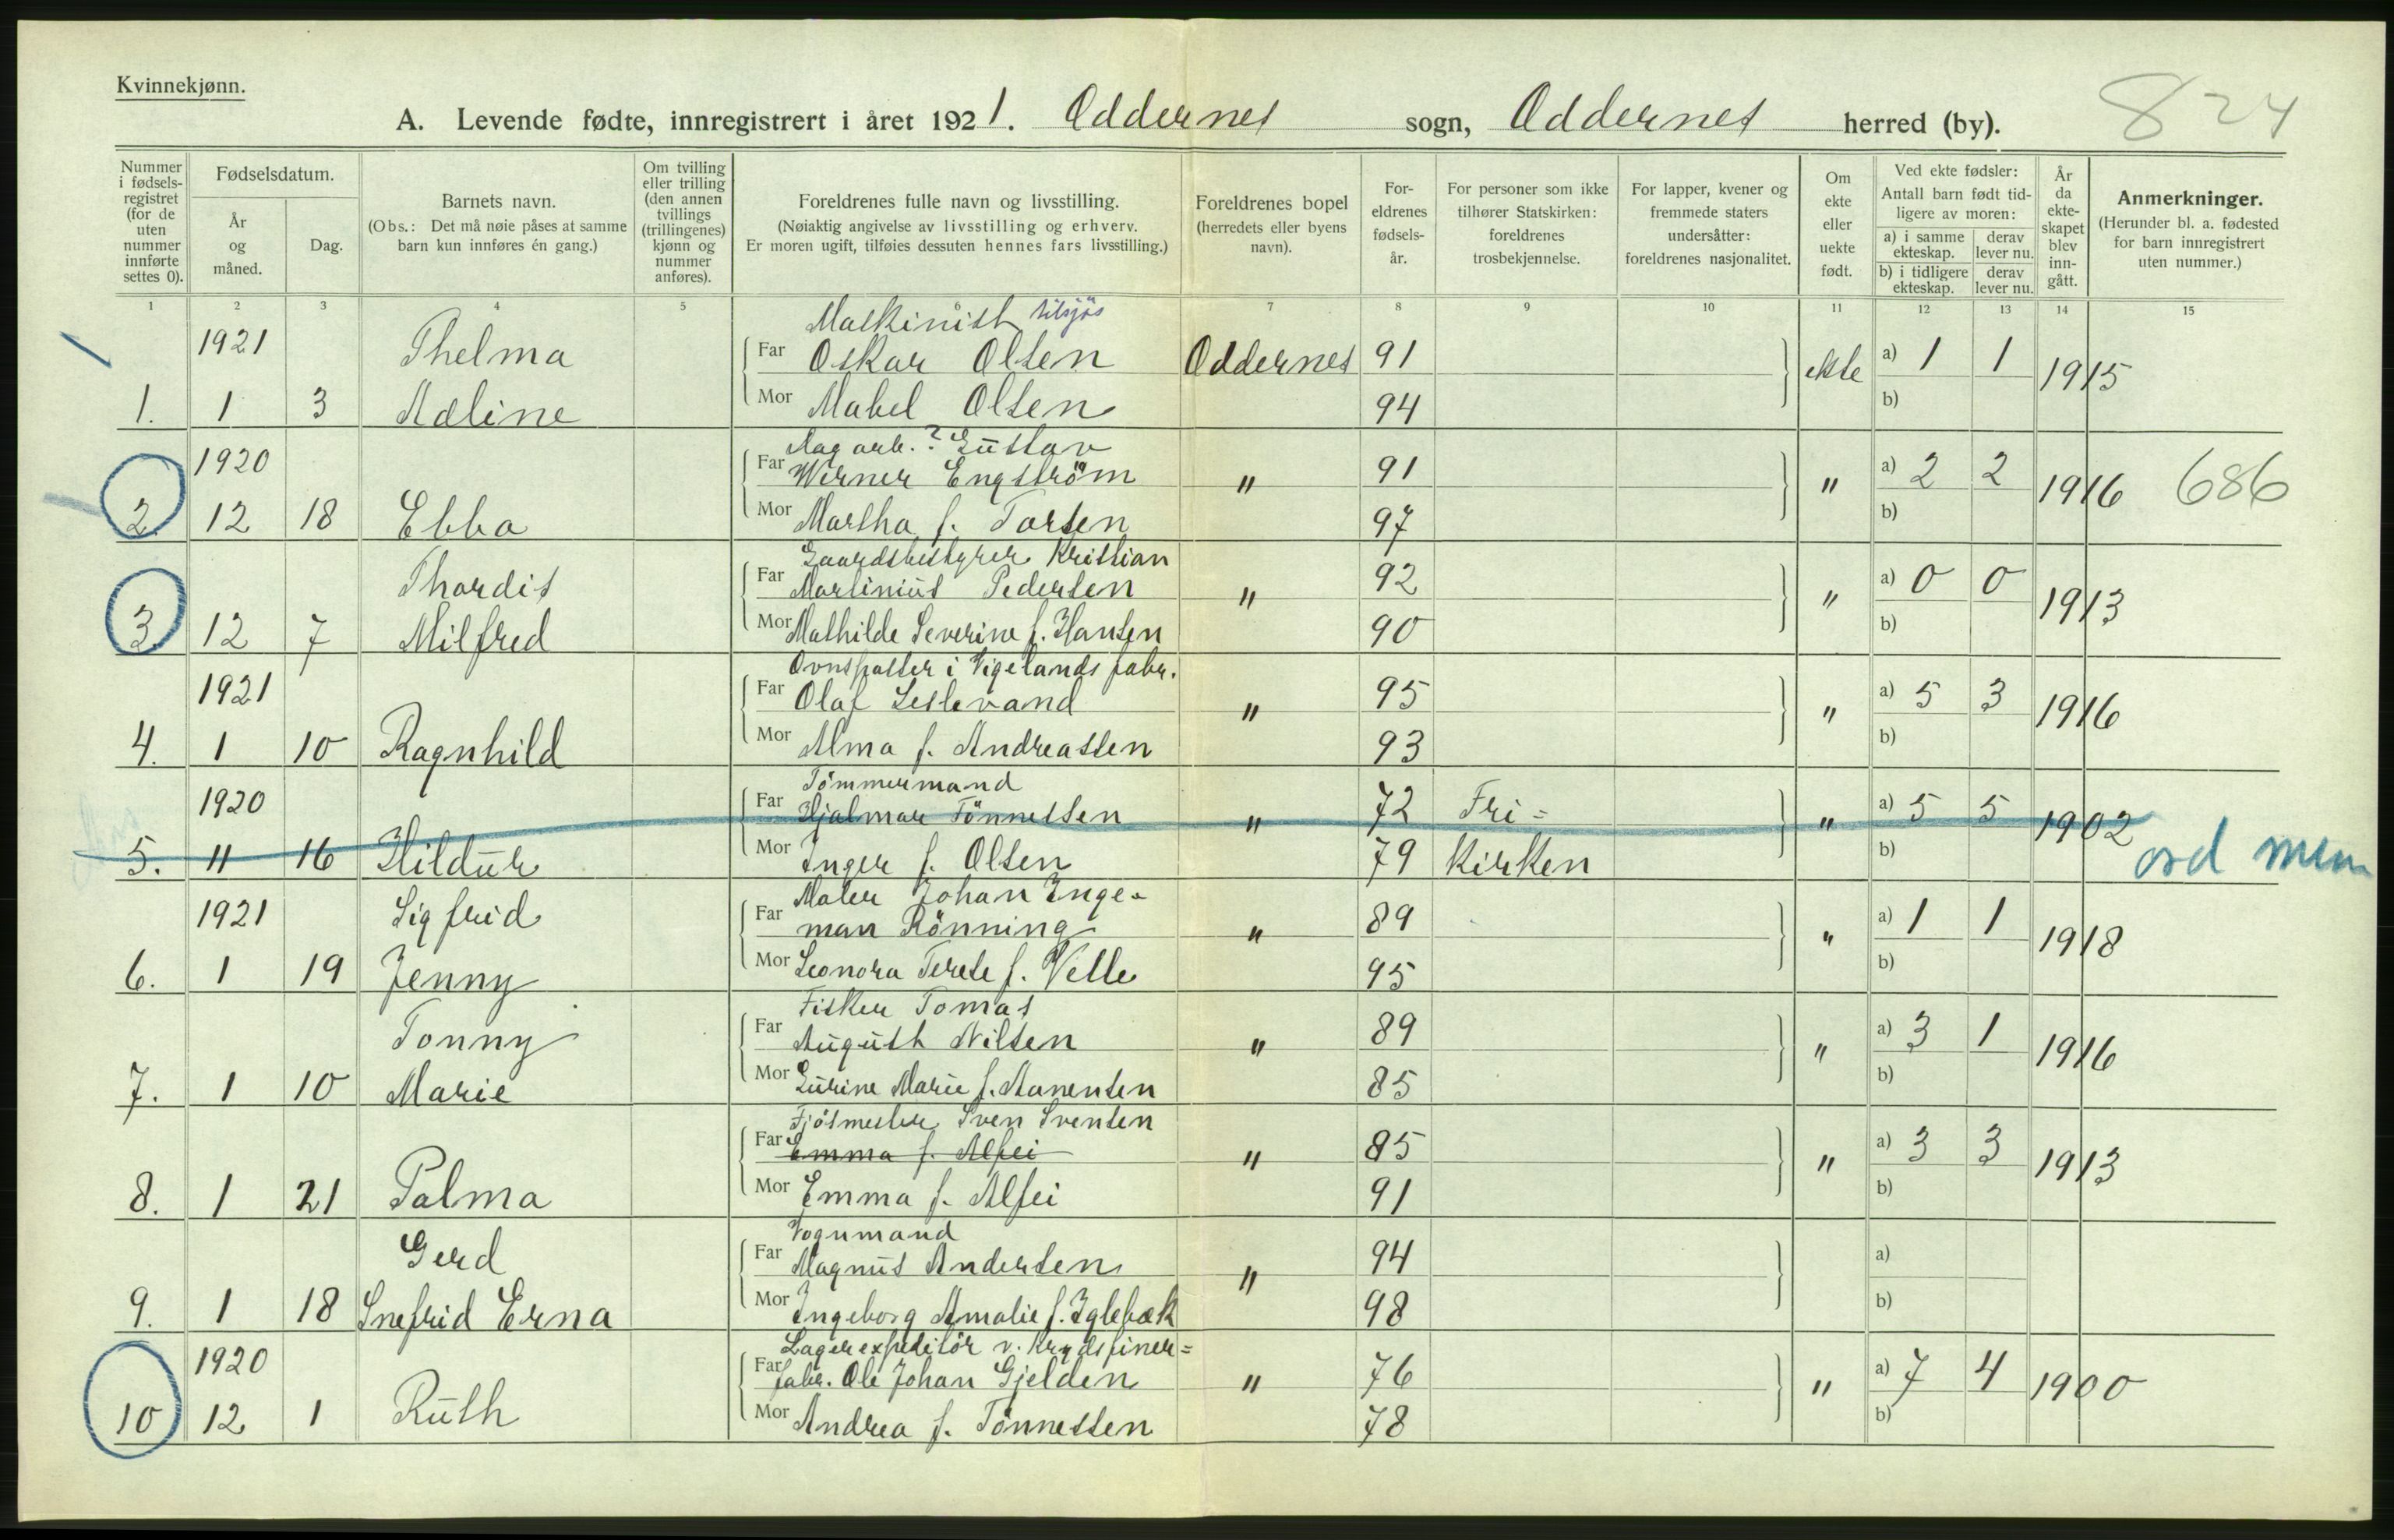 Kvinnekjønn.
A. Levende fødte, innregistrert i året 1921. Oddernes sogn, Oddernes herred (by). 824
Nummer i fødsels-registret (for de uten nummer innførte settes 0).
Fødselsdatum.
År og måned.
Dag.
Barnets navn.
(Obs.: Det må nøie påses at samme barn kun innføres én gang.)
Om tvilling eller trilling (den annen tvillings (trillingenes) kjønn og nummer anføres).
Foreldrenes fulle navn og livsstilling.
(Nøiaktig angivelse av livsstilling og erhverv.
Er moren ugift, tilføies dessuten hennes fars livsstilling.)
Foreldrenes bopel (herredets eller byens navn).
For-eldrenes fødsels-år.
For personer som ikke tilhører Statskirken: foreldrenes trosbekjennelse.
For lapper, kvener og fremmede staters undersåtter: foreldrenes nasjonalitet.
Om ekte eller uekte født.
Ved ekte fødsler:
Antall barn født tid-ligere av moren:
a) i samme ekteskap. derav lever nu.
b) i tidligere ekteskap. derav lever nu.
År da ekte-skapet blev inn-gått.
Anmerkninger.
(Herunder bl. a. fødested for barn innregistrert uten nummer.)
1 2 3 4 5 6 7 8 9 10 11 12 13 14 15
Maskinist tilsjøs
1921 Thelma Far Oskar Olsen Oddernes 91 ekte a) 1 1 1915
1. 1 3 Adline Mor Mabel Olsen 94 b)
Dag arb. ? Gustav
1920 Far Werner Engström " 91 " a) 2 2 1916 686
2. 12 18 Ebba Mor Martha f. Torsen 97 b)
Gaardsbestyrer Kristian
Thordis Far Martinius Pedersen " 92 " a) 0 0 1913
3. 12 7 Milfred Mor Mathilde Severine f. Hansen 90 b)
Ovnspasser i Vigelands fabr.
1921 Far Olaf Leslevand " 95 " a) 5 3 1916
4. 1 10 Ragnhild Mor Alma f. Andreassen 93 b)
Tömmermand
1920 Far Hjalmar Tönnessen " 72 Fri- " a) 5 5 1902
5. 11 16 Hildur Mor Inger f. Olsen 79 Kirken b) ord
Maler Johan Inge-
1921 Sigfrid Far man Rönning " 89 " a) 1 1 1918
6. 1 19 Jenny Mor Leonora Terese f. Velle 95 b)
Fisker Tomas
Tonny Far August Nilsen " 89 " a) 3 1 1916
7. 1 10 Marie Mor Gurine Marie f. Aanensen 85 b)
Fjösmester Sven Svensen
Far Emma f. Alfei " 85 " a) 3 3 1913
8. 1 21 Palma Mor Emma f. Alfei 91 b)
Vognmand
Gerd Far Magnus Andersen " 94 a)
9. 1 18 Snefrid Erna Mor Ingeborg Amalie f. Iglebæk 98 b)
Lagerexpeditör v. Krydsfiner=
1920 Far fabr. Ole Johan Gjelden " 76 " a) 7 4 1900
10 12 1 Ruth Mor Andrea f. Tönnessen 78 b)